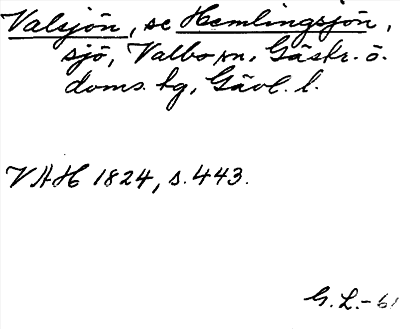 Valsjön, se Hemlingsjön,
sjö, Valbo sn, Gästr. ö.
doms. hg, Gävl. l.
VAH 1824, s. 443.
G. L. - 61